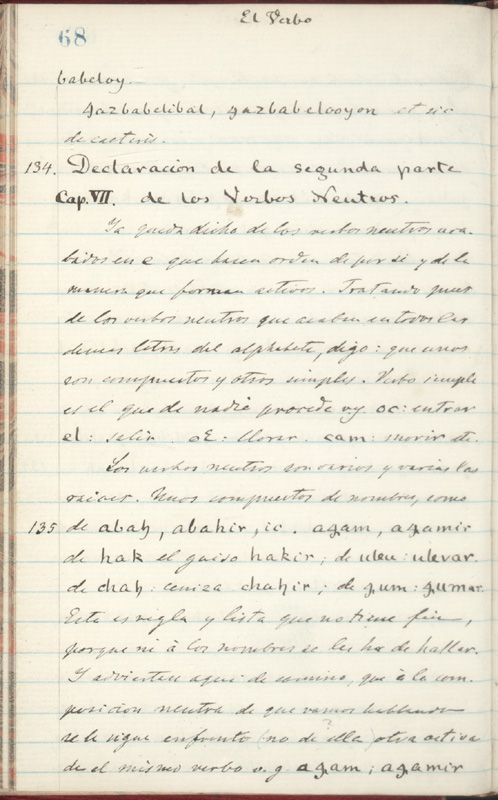 El Verbo
68
babeloy.
4azbabelibal, 4azbabelooyon et sic
de ceteris.
134. Declaracion de la segunda parte
Cap. VII. de los Verbos Neutros.
Ya queda dicho de los verbos neutros aca-
bados en e que hacen orden de por si y de la
manera que forman activos. Tratando pues
de los verbos neutros que acaban en todas las
demas letras del alphabeto, digo: que unos
son compuestos y otros simples. Verbo simple
es el que de nadie procede vg oc: entrar
el: salir. oE: llorar. cam: morir &.
Los verbos neutros son varios y varias las
raices. Unos compuestos de nombres, como
135 de abah, abahir, ic. agam, agamir
de hak el guiso hakir; de uleu: ulevar.
de chah: ceniza chahir; de 4um: 4umar.
Esta es regla y lista que no tiene fin,
porque ni à los nombres se les ha de hallar.
Y adviertase aqui de camino, que à la com-
posicion neutra de que vamos hablando
se le sigue enfronto (no de ? ella) otra activa
de el mismo verbo v. g. agam; agamir